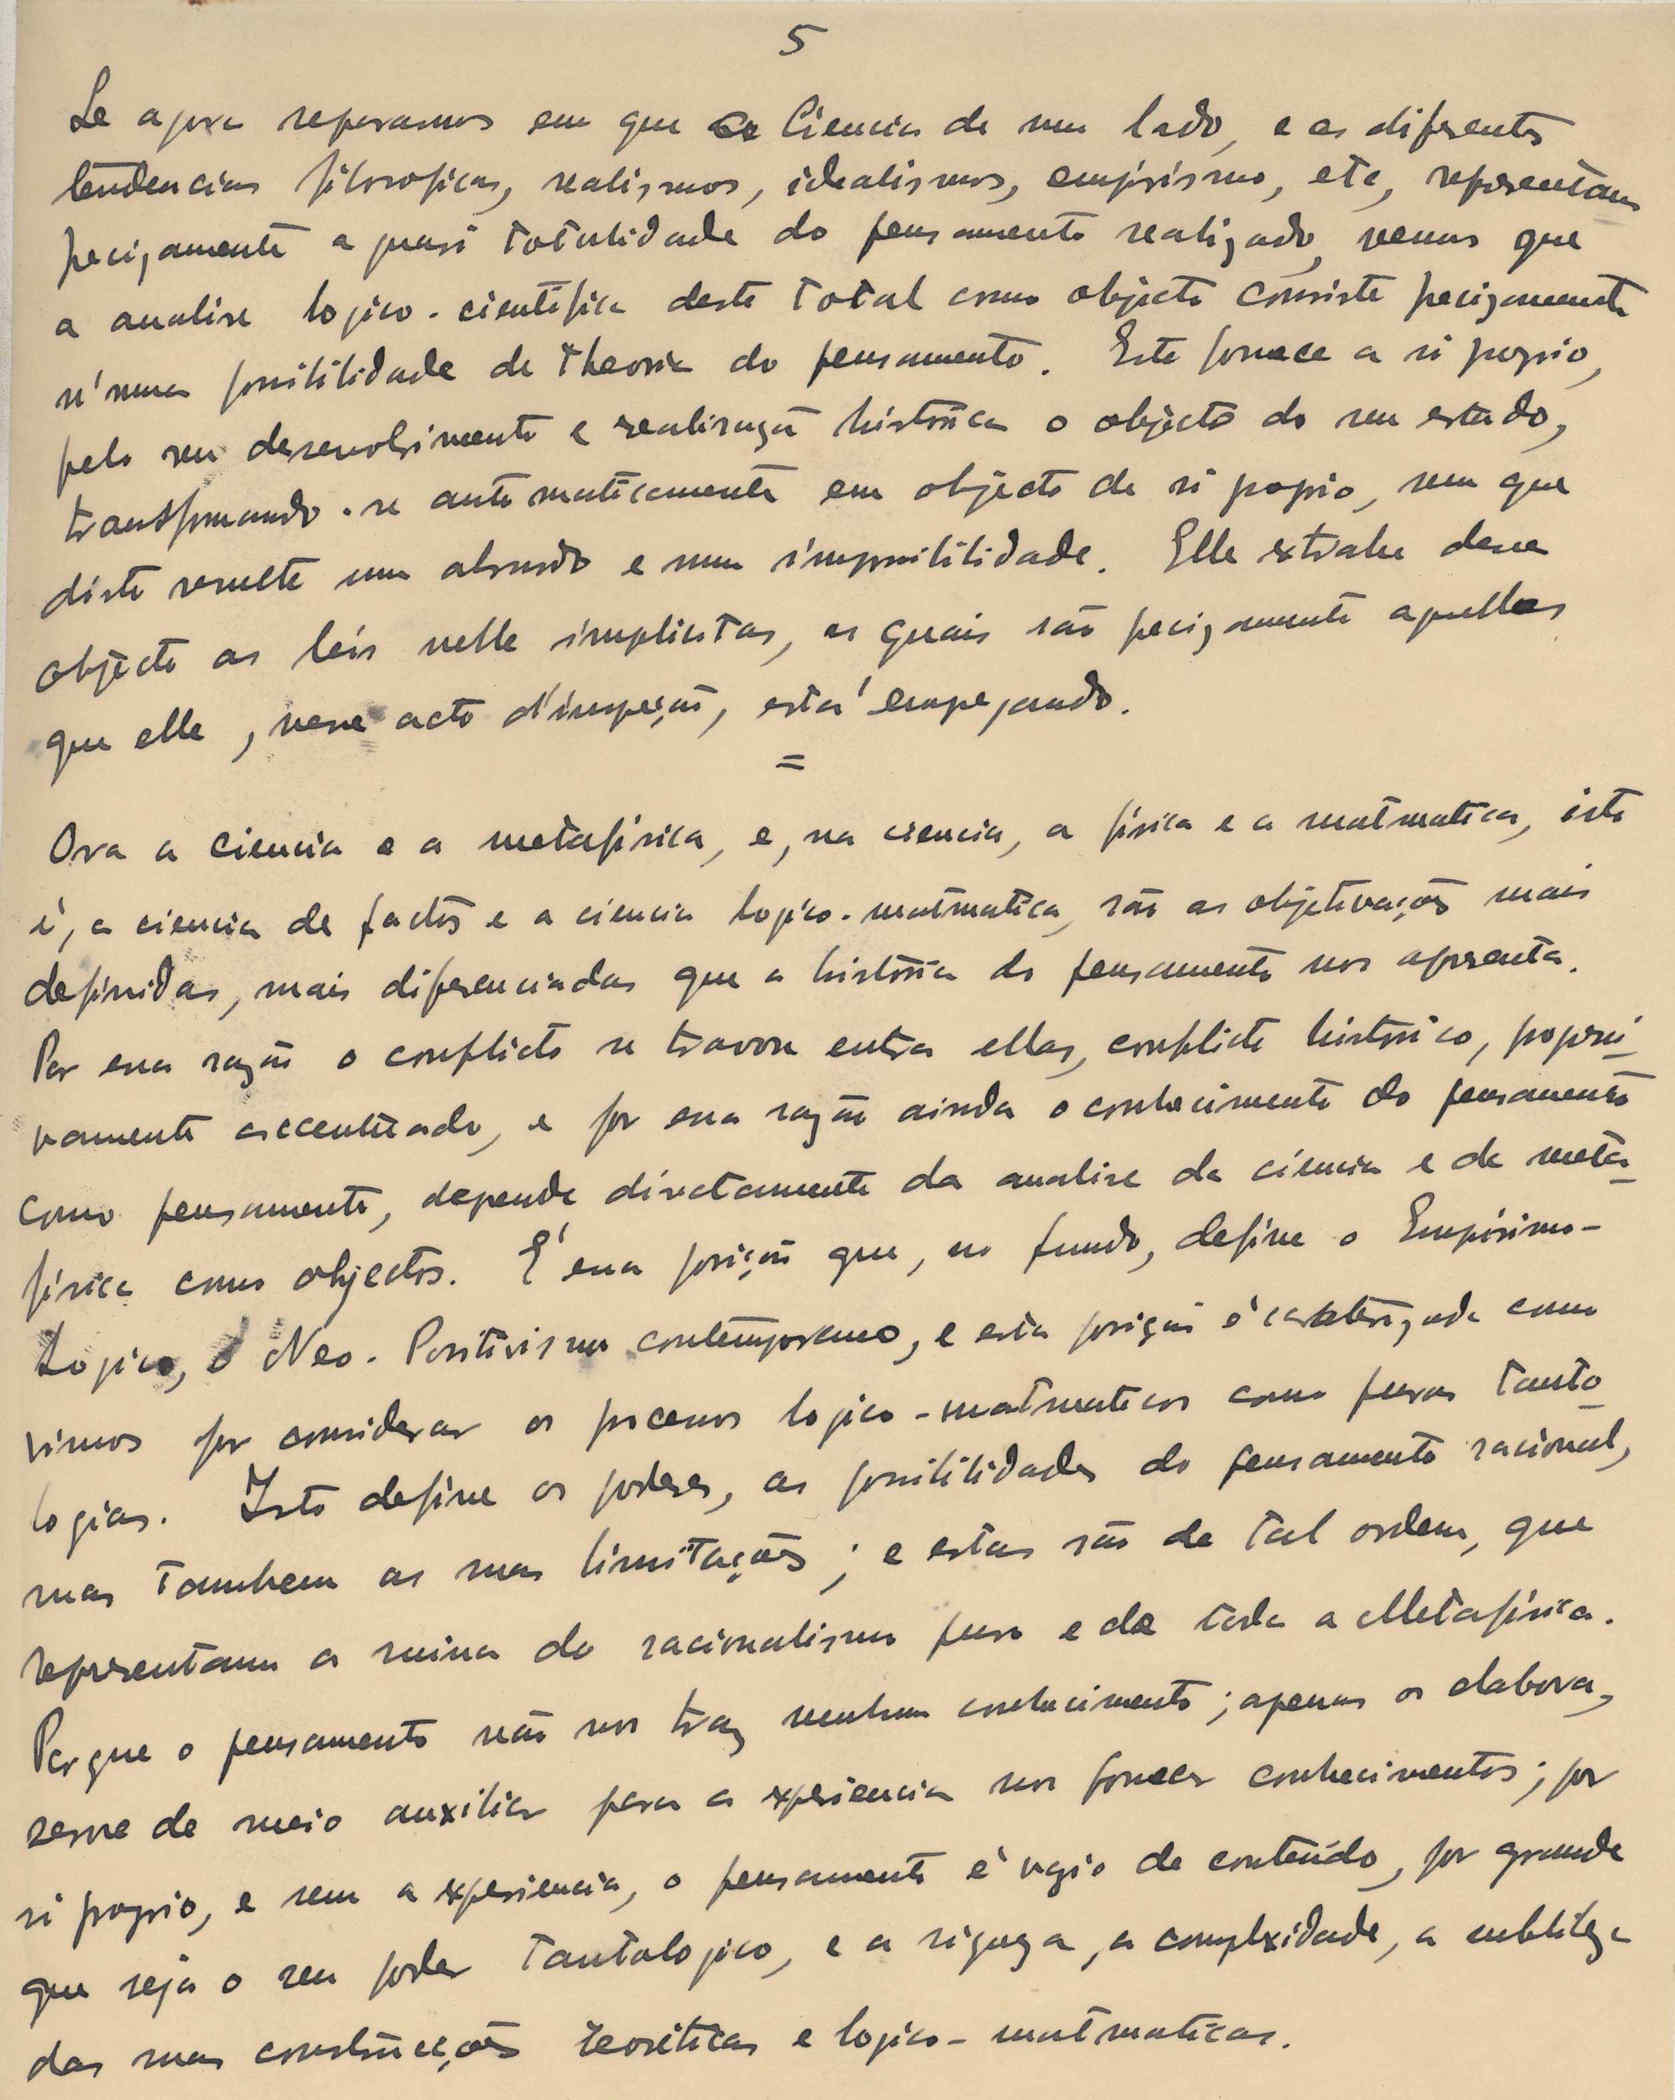 5
Se agora reparamos em que a Ciencia de um lado, e as diferentes
tendencias filosoficas, realismos, idealismos, empirismo, etc, representam
precizamente a quasi totalidade do pensamento realizado, vemos que
a analise logico-cientifica deste total como objecto consiste precizamente
n'uma possibilidade de theoria do pensamento. Este fornece a si proprio,
pelo seu desenvolvimento e realisação histórica o objecto do seu estudo,
transformando-se automaticamente em objecto de si proprio, sem que
disto resulte um absurdo e uma impossibilidade. Elle extrahe desse
objecto as leis nelle implicitas, as quais são precizamente aquellas
que elle, nesse acto d'inspeção, está empregando.
=
Ora a ciencia e a metafisica, e, na ciencia, a fisica e a matematica, isto
é, a ciencia de factos e a ciencia logico-matematica, são as objetivações mais
definidas, mais diferenciadas que a história do pensamento nos apresenta.
Por essa razão o conflicto se travou entre ellas, conflicto histórico, progressi-
vamente accentuado, e por essa razão ainda o conhecimento do pensamento
como pensamento, depende directamente da analise da ciencia e da meta-
fisica como objectos. É essa posição que, no fundo, define o Empirismo-
Logico, o Neo-Positivismo contemporaneo, e esta posição é caracterizada como
vimos por considerar os processos logico-matematicos como puras tauto-
logias. Isto define os poderes, as possibilidades do pensamento racional,
mas tambem as suas limitações; e estas são de tal ordem, que
representam a ruina do racionalismo puro e de toda a Metafisica.
Porque o pensamento não nos traz nenhum conhecimento; apenas os elabora,
serve de meio auxiliar para a experiencia nos fornecer conhecimentos; por
si proprio, e sem a experiencia, o pensamento é vazio de conteúdo, por grande
que seja o seu poder tautologico, e a riqueza, a complexidade, a subtileza
das suas construcções teoréticas e logico-matematicas.